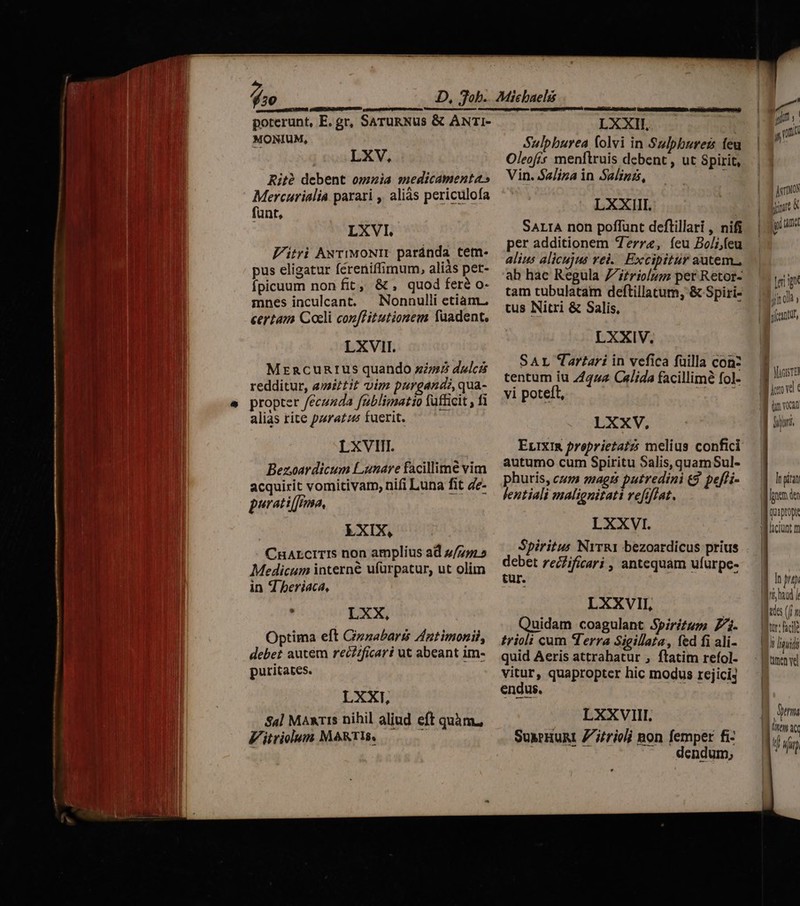 430 D, Joh. Michaelis
poterunt, E. gr, SATURNUS & ANTI-
MONIUM,
LXV.
Ritè debent omnia medicamenta
Mercurialia parari, aliàs periculoſa
ſunt,
LXVI.
Vitri ANTIMONII paránda tem-
pus eligatur ſereniſſimum, aliàs per-
ſpicuum non fit, &, quod ferè o-
mnes inculcant. Nonnulli etiàm
certam Cœli conſtitutionem ſuadent.
LXVII.
MERCURIUS quando nimis dulcis
redditur, amittit vim purgandi, qua-
propter ſecunda ſublimatio ſufficit, ſi
aliàs rite puratus fuerit.
LXVIII.
Bezoardicum Lunare facillimè vim
acquirit vomitivam, niſi Luna ſit de-
puratiſſima,
LXIX,
CHALCITIS non amplius ad uſum
Medicum internè uſurpatur, ut olim
in Theriaca,
LXX,
Optima eſt Cinnabaris Antimonii,
debet autem rectificari ut abeant im-
puritates.
LXXI,
Sal MARTIS nihil aliud eſt quàm
Vitriolum MARTIS,
LXXII,
Sulphurea ſolvi in Sulphureis ſeu
Oleoſis menſtruis debent, ut Spirit,
Vin. Salina in Salinis,
LXXIII.
SALIA non poſſunt deſtillari, niſi
per additionem Terræ, ſeu Boli, ſeu
alius alicujus rei. Excipitur autem
ab hac Regula Vitriolum per Retor-
tam tubulatam deſtillatum, & Spiri-
tus Nitri & Salis,
LXXIV.
SAL Tartari in veſica ſuilla con-
tentum iu Aqua Calida facillimè ſol-
vi poteſt,
LXXV.
ELIXIR proprietatis melius confici
autumo cum Spiritu Salis, quam Sul-
phuris, cum magis putredini & peſti-
lentiali malignitati reſiſtat.
LXXVI.
Spiritus NITRI bezoardicus prius
debet rectificari, antequam uſurpe-
tur.
LXXVII,
Quidam coagulant Spiritum Vi-
trioli cum Terra Sigillata, ſed ſi ali-
quid Aeris attrahatur, ſtatim reſol-
vitur, quapropter hic modus rejici-
endus.
LXXVIII.
SULPHURI Vitrioli non ſemper fi-
dendum,